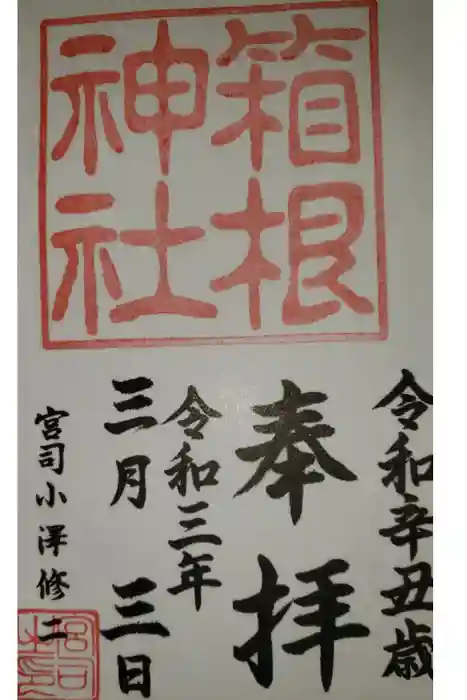 箱根
神社
令和辛丑歳
奉拝
令和三年
三月三日
宮司小澤修二
宮司
之印